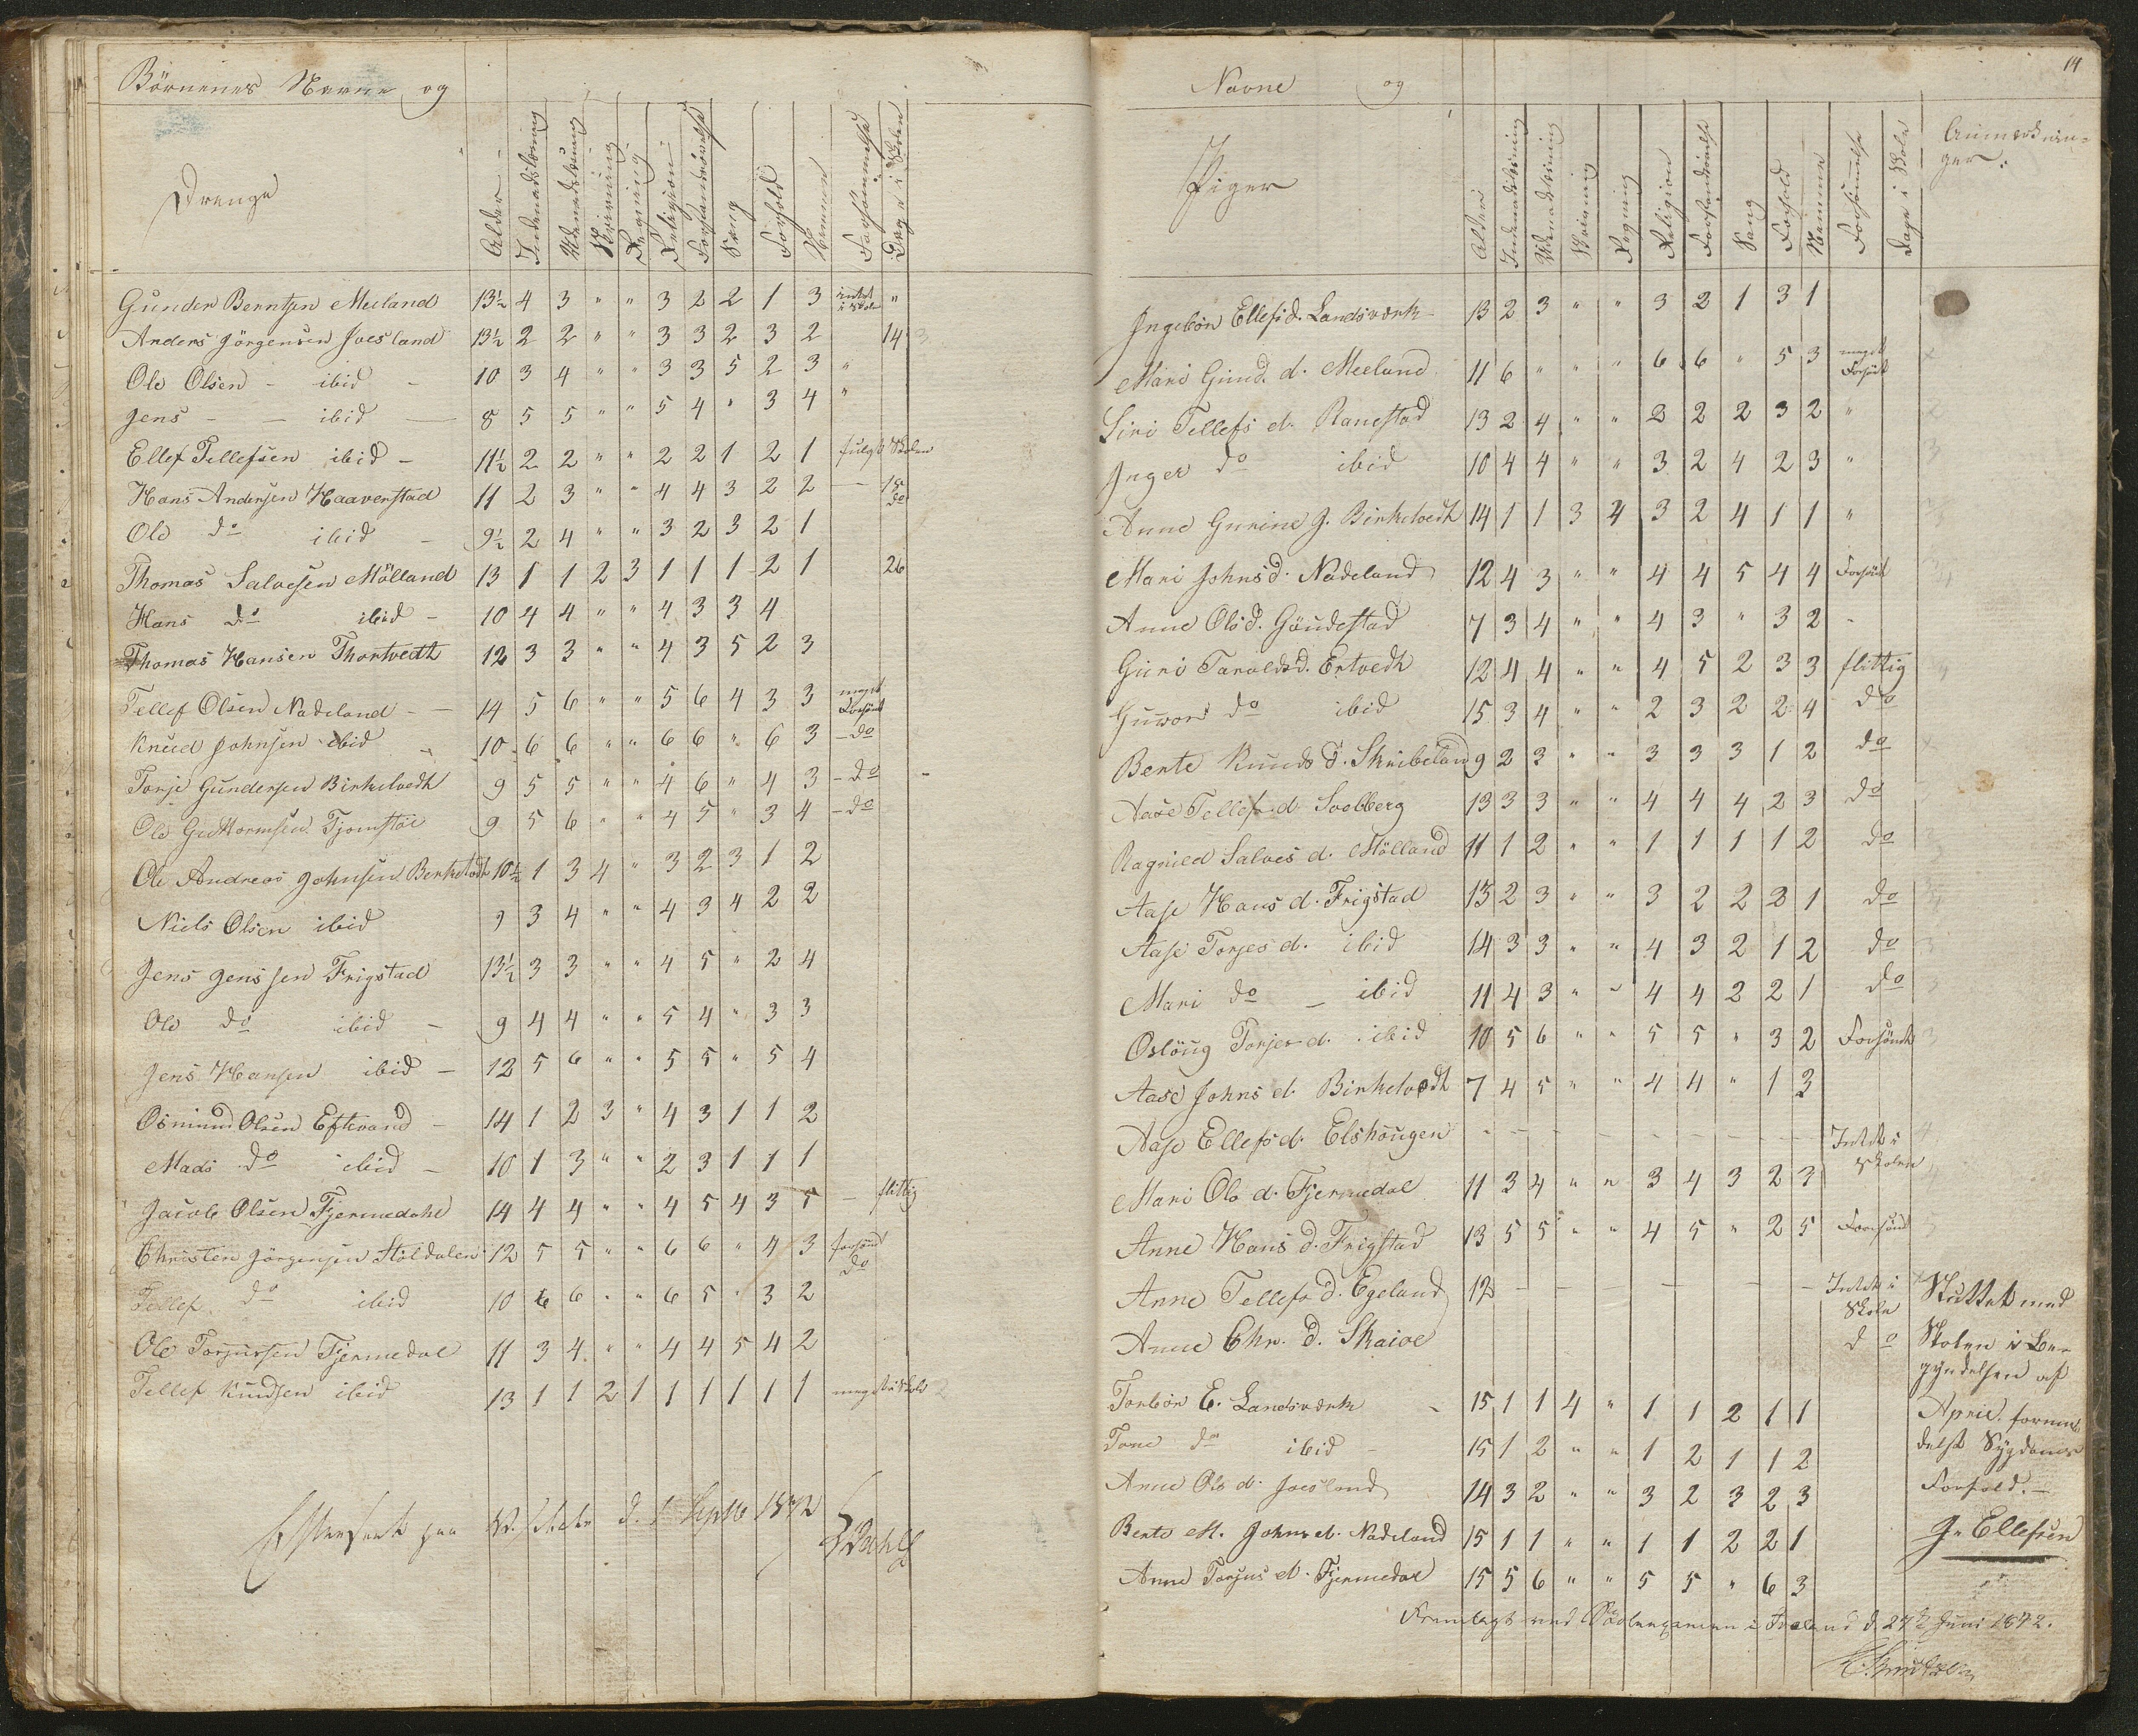 Börnenes Navne og
Drenge
Alder
Indenadslæsning
Udenadslæsning
Skrivning
Regning
Religion
Forstandsövelse
Sang
Forhold
Nemme
Forsömmelse
Dage i Skolen
Gunder Berntsen Meeland 13½ 4 3 " " 3 2 2 1 3 intet i Skole "
Anders Jörgensen Joesland 13½ 2 2 " " 3 3 2 3 2 14
Ole Olsen - ibid - 10 3 4 " " 3 3 5 2 3 "
Jens - - ibid - 8 5 5 " " 5 4 " 3 4 "
Ellef Tellefsen ibid - 11½ 2 2 " " 2 2 1 2 1 fulgt Skolen
Hans Andersen Haaverstad 11 2 3 " " 4 4 3 2 2 - 15 do
Ole do ibid - 9½ 2 4 " " 3 2 3 2 1
Thomas Salvesen Mölland 13 1 1 2 3 1 1 1 2 1 26
Hans do ibid - 10 4 4 " " 4 3 3 4
Thomas Hansen Thortvedt 12 3 3 " " 4 3 5 2 3
Tellef Olsen Nadeland - 14 5 6 " " 5 6 4 3 3 meget Forsömt
Knud Johnsen ibid - 10 6 6 " " 6 6 " 6 3 - do
Torje Gundersen Birketvedt 9 5 5 " " 4 6 " 4 3 - do
Ole Guttormsen Tjomstöe 9 5 6 " " 4 5 " 3 4 - do
Ole Andreas Johnsen Berketvedt 10½ 1 3 4 " 3 2 3 1 2
Niels Olsen ibid 9 3 4 " " 4 3 4 2 2
Jens Jenssen Frigstad 13½ 3 3 " " 4 5 " 2 4
Ole do ibid - 9 4 4 " " 5 4 " 3 3
Jens Hansen ibid - 12 5 6 " " 5 5 " 5 4
Osmund Olsen Eftevand - 14 1 2 3 " 4 3 1 1 2
Mads do ibid - 10 1 3 " " 2 3 1 1 1
Jacob Olsen Fjermedahl 14 4 4 " " 4 5 4 3 5 - flittig
Christen Jörgensen Stöldalen 12 5 5 " " 6 6 " 4 3 forsömt
Tellef do ibid 10 6 6 " " 6 5 " 3 2 do
Ole Torjussen Fjermedal 11 3 4 " " 4 4 5 4 2
Tellef Knudsen ibid 13 1 1 2 1 1 1 1 1 1 meget i Skole
Efterseet paa d. 1 Septb 1872
Navne og
14
Piger
Alder
Indenadslæsning
Udenadslæsning
Skrivning
Regning
Religion
Forstandsövelse
Sang
Forhold
Nemme
Forsömmelse
Dage i Skole
Anmærknin-
ger.
Ingebör Ellefsd. Landsværk 13 2 3 " " 3 2 1 3 1
Mari Gund. d. Meeland 11 6 " " " 6 6 " 5 3 meget Forsömt
Siri Tellefs d. Ranestad 13 2 4 " " 2 2 2 3 2 "
Inger do ibid 10 4 4 " " 3 2 4 2 3 "
Anne Gurine J. Birketvedt 14 1 1 3 4 3 2 4 1 1 "
Mari Johnsd. Nadeland 12 4 3 " " 4 4 5 4 4 Forsömt
Anne Olsd. Göudestad 7 3 4 " " 4 3 " 3 2 -
Guri Taraldsd. Ertvedt 12 4 4 " " 4 5 2 3 3 flittig
Gunvor do ibid 15 3 4 " " 2 3 2 2 4 do
Bente Knuds d. Skribeland 9 2 3 " " 3 3 3 1 2 do
Aase Tellefs d. Svebberg 13 3 3 " " 4 4 4 2 3 do
Ragnild Salves d. Mölland 11 1 2 " " 1 1 1 1 2 do
Aase Hans d. Frigstad 13 2 3 " " 3 2 2 2 1 do
Aase Torjes d. ibid 14 3 3 " " 4 3 2 1 2 do
Mari do - ibid 11 4 3 " " 4 4 2 2 1 do
Oslöug Torjes d. ibid 10 5 6 " " 5 5 " 3 2 Forsömt
Aase Johns d. Birketvedt 7 4 5 " " 4 4 " 1 3
Aase Ellefsd. Elshöugen - - - - - - - - - Intet i Skolen
Mari Ols d. Fjermedal 11 3 4 " " 3 4 3 2 3
Anne Hans d. Frigstad 13 5 5 " " 4 5 " 2 5 Forsömt
Anne Tellefs d. Egeland 12 - - - - - Intet i Skole
Anne Chr. d. Skaiae do
Torbör E. Landsværk - 15 1 1 4 " 1 1 2 1 1
Tone do ibid - 15 1 2 " " 1 2 1 1 2
Anne Ols d. Joesland 14 3 2 " " 3 2 3 2 3
Bente M. Johns d. Nadeland 15 1 1 " " 1 1 2 2 1
Anne Torjus d. Fjermedal 15 5 6 " " 5 5 " 6 3
Sluttet med
Skolen i Be-
gyndelsen af
April formme-
delst Sygdoms
Forhold. -
J. Ellefsen
Fremlagt ved Skolexamen i Iveland d. 27 Juni 1872.